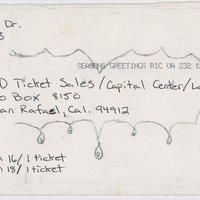 Dr.
SEASONS GREETINGS RIC VA 232 1
D Ticket Sales/Capital Center/La
O Box $150
an Rafael, Cal. 94912
16/1 ticket
18/1 ticket